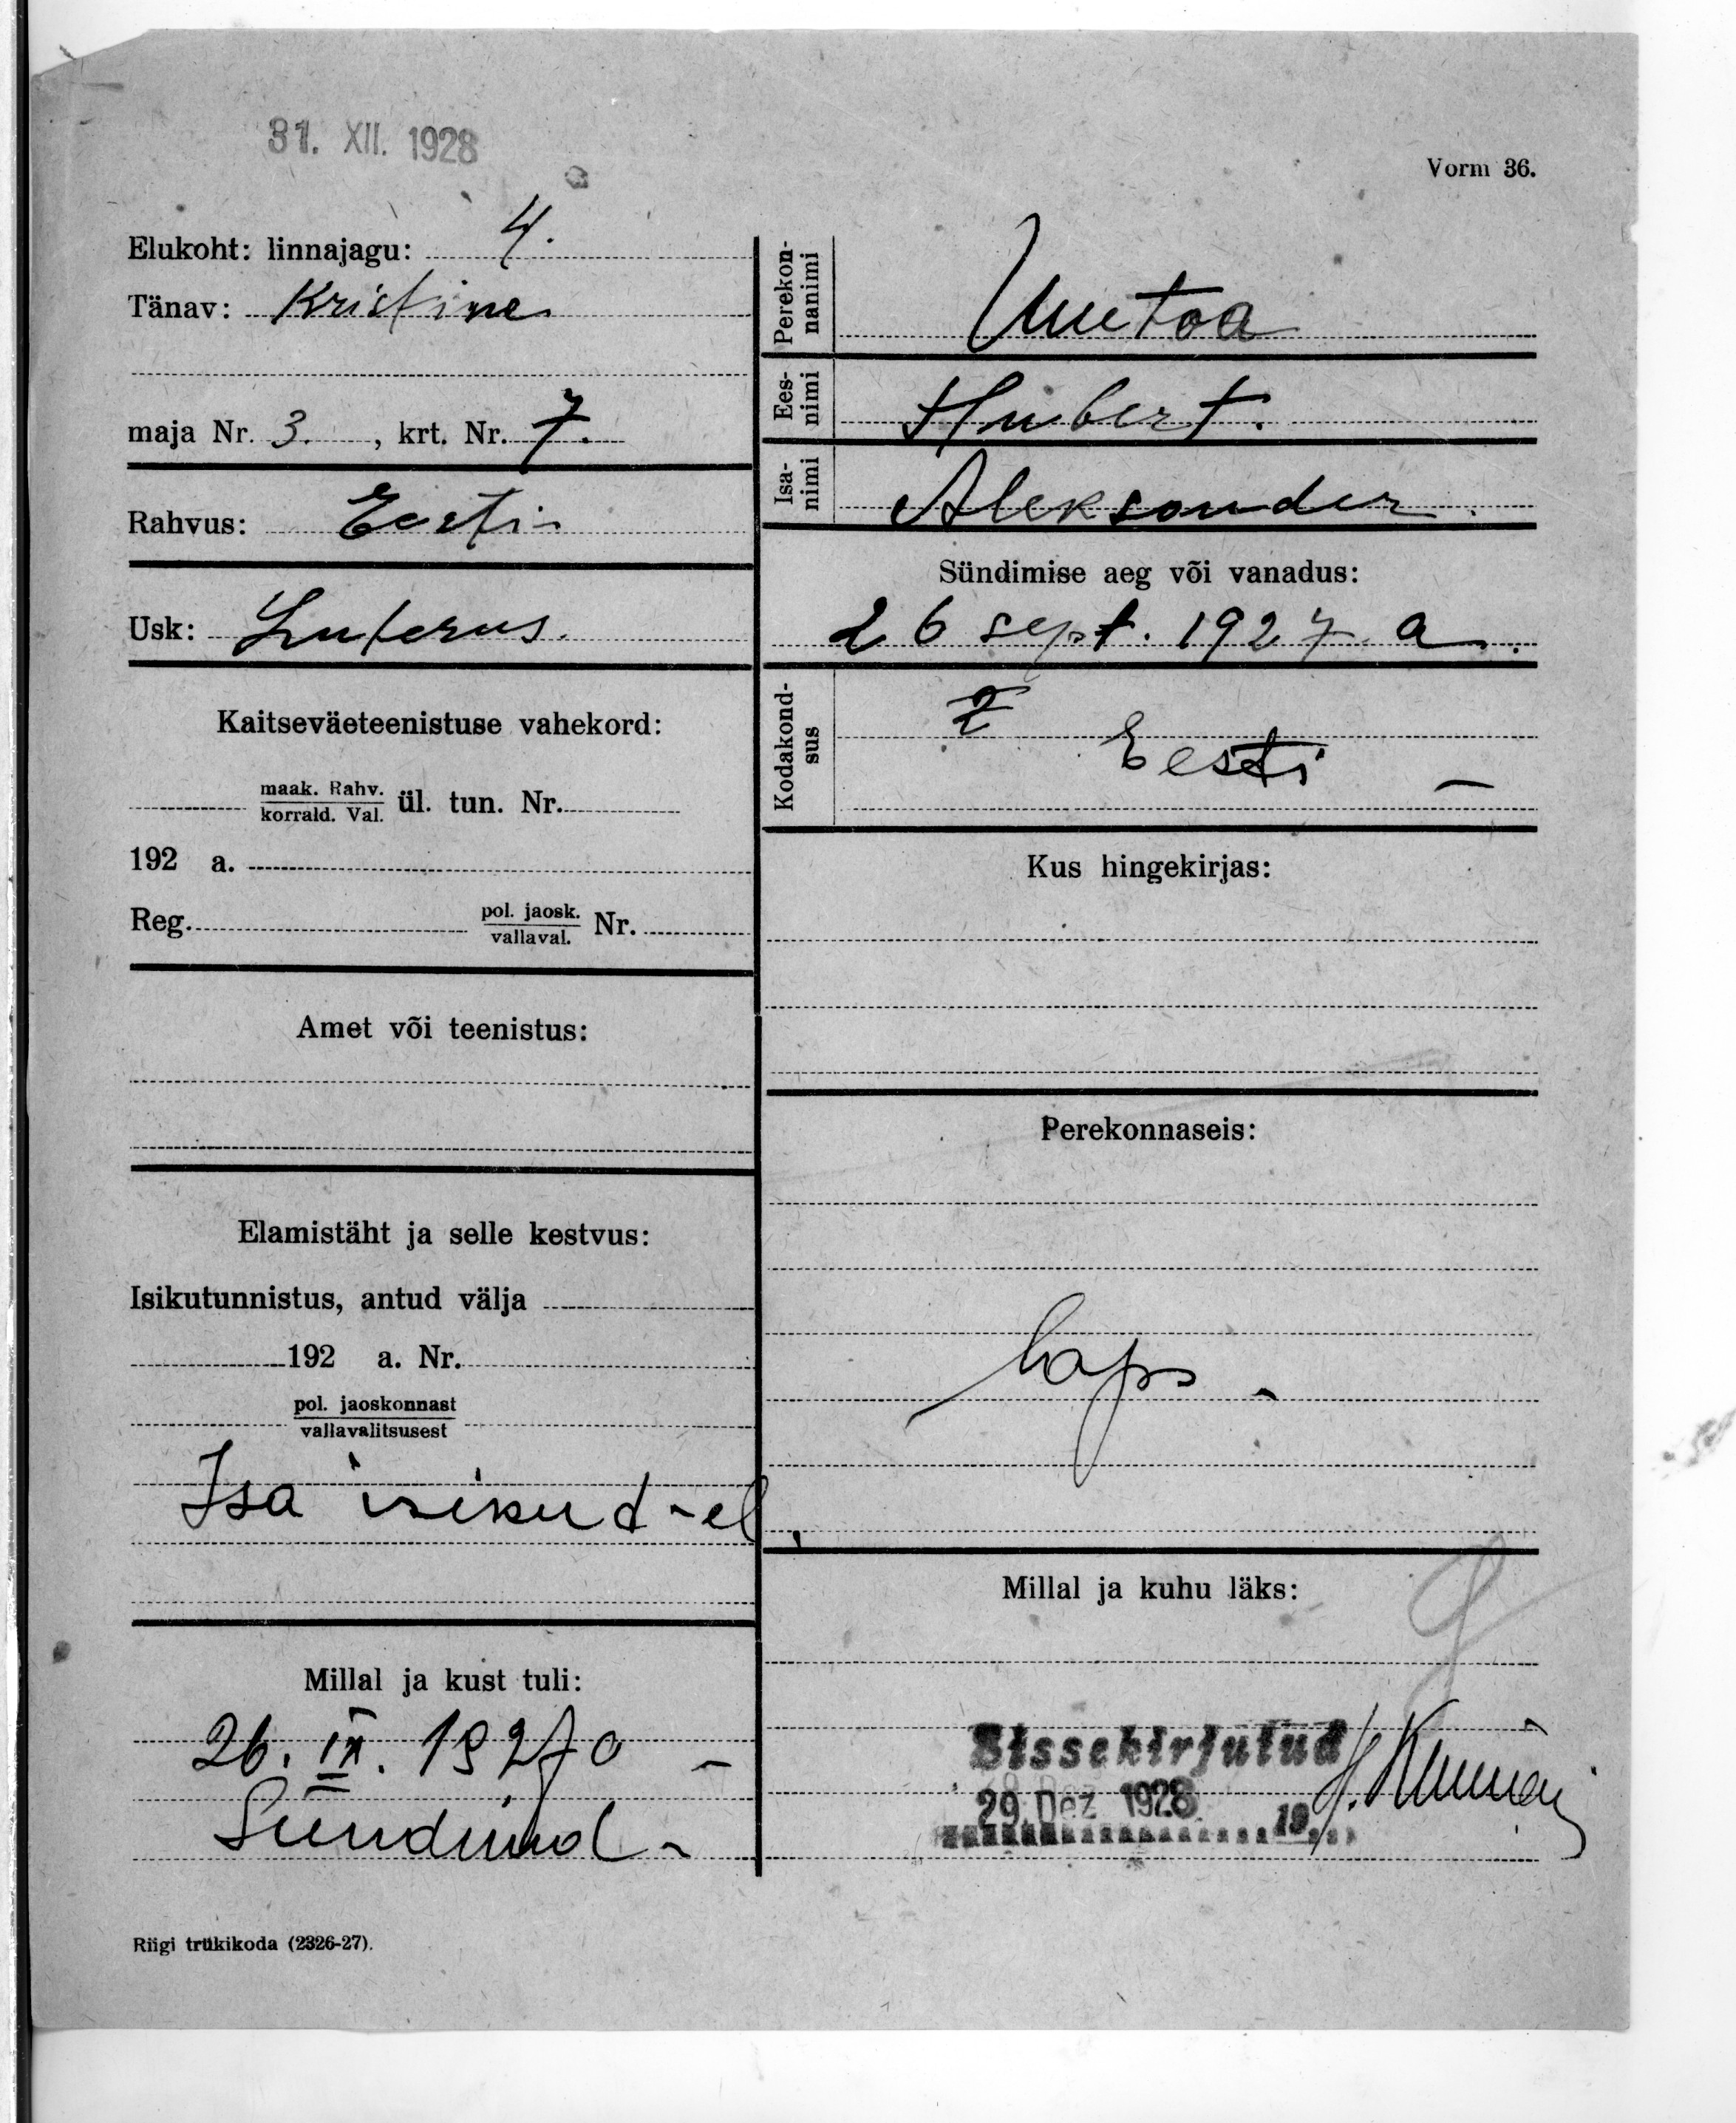 31. XII. 1928
Vorm 36.
Elukoht: linnajagu: 4.
Tänav: Kristine
maja Nr. 3. , krt. Nr. 7.
Rahvus: Eesti
Usk: Luterus.
Kaitseväeteenistuse vahekord:
maak. Rahv.
korrald. Val. ül. tun. Nr.
192 a.
Reg. pol. jaosk.
vallaval. Nr.
Amet või teenistus:
Elamistäht ja selle kestvus:
Isikutunnistus, antud välja
192 a. Nr.
pol. jaoskonnast
vallavalitsusest
Isa isikud-el.
Millal ja kust tuli:
26. IX. 1927 a -
Sündinud -
Riigi trükikoda (2326-27).
Perekon-
nanimi
Uuetoa
Ees-
nimi
Hubert.
Isa-
nimi
Aleksander.
Sündimise aeg või vanadus:
26 sept. 1927 a.
Kodakond-
sus
Eesti -
Kus hingekirjas:
Perekonnaseis:
laps -
Millal ja kuhu läks:
Sissekirjutud
29. Dez 1928 19